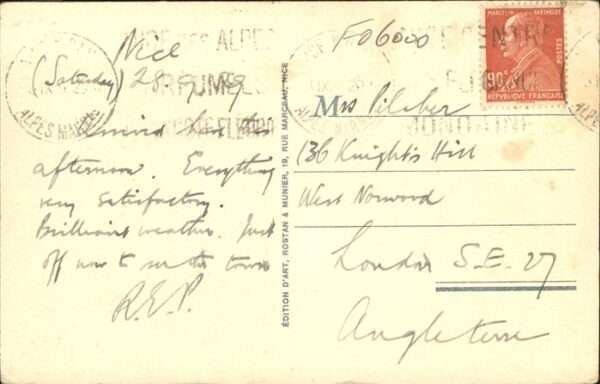 Nice
(Saturday) 28.9.29
Arrived here this
afternoon. Everything
very satisfactory.
Brilliant weather. Just
off now to see the town
R.E.P.
ÉDITION D'ART, ROSTAN & MUNIER, 19, RUE MARCEAU, NICE
F06000
Mrs Pilcher
136 Knight's Hill
West Norwood
London S.E. 27
Angleterre
MARCELIN BERTHELOT
90c
POSTES
RÉPUBLIQUE FRANÇAISE
ALPES
PARFUMS
CENTRE
MONDAINE
ALPES MARIT